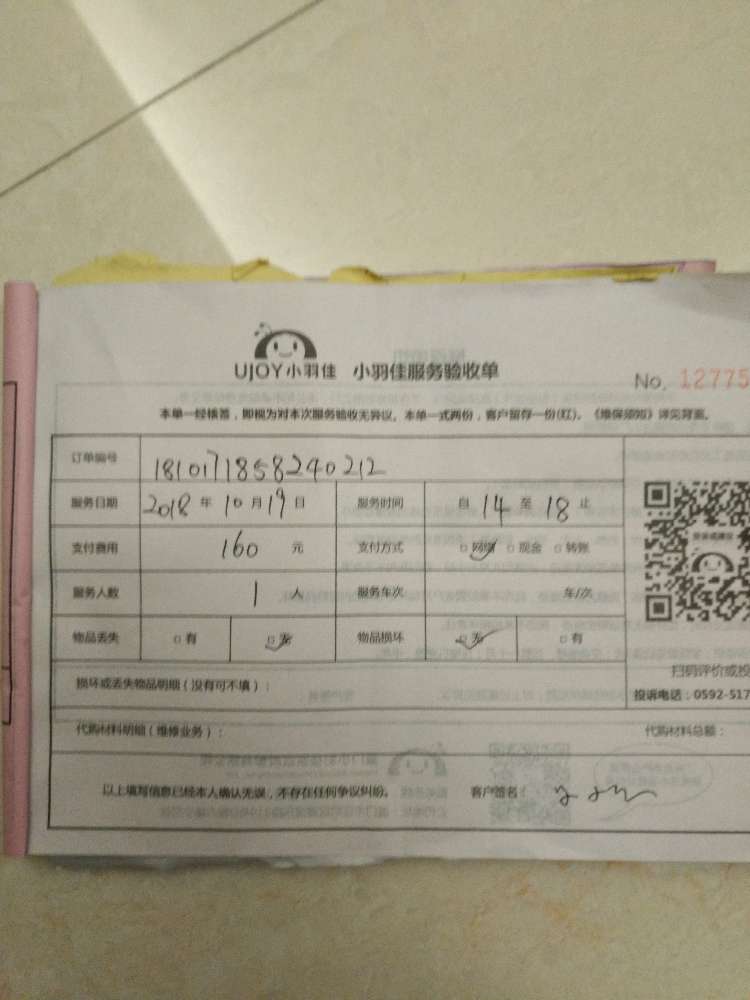 UJOY小羽佳 小羽佳服务验收单
No. 12775
本单一经核签，即视为对本次服务验收无异议。本单一式两份，客户留存一份(红)。《维保须知》详见背面。
订单编号 1810171858240212
服务日期 2018 年 10 月 19 日 服务时间 自 14 至 18 止
支付费用 160 元 支付方式 □ 网络 □ 现金 □ 转账
服务人数 1 人 服务车次 车/次
物品丢失 □ 有 □ 无 物品损坏 □ 无 □ 有
损坏或丢失物品明细（没有可不填）：
扫码评价或投
投诉电话：0592-517
代购材料明细（维修业务）： 代购材料总额：
以上填写信息已经本人确认无误，不存在任何争议纠纷。 客户签名：